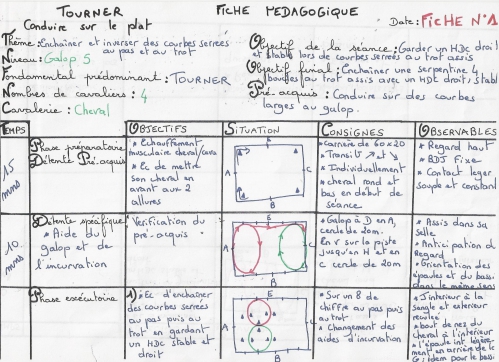 TOURNER
FICHE PEDAGOGIQUE
Date: FICHE N°1
Conduire sur le plat
Thème: Enchaîner et inverser des courbes serrées au pas et au trot
Niveau: Galop 5
Fondamental prédominant: TOURNER
Nombres de cavaliers: 4
Cavalerie: Cheval
Objectif de la séance: Garder un HDC droit
et stable lors de courbes serrées au trot assis
Objectif final: Enchaîner une serpentine 4
boucles au trot assis avec un HDC droit, stable
Pré-acquis: Conduire sur des courbes
larges au galop.
TEMPS
OBJECTIFS
SITUATION
CONSIGNES
OBSERVABLES
15 mns
Phase préparatoire
Détente Pré-acquis
* Echauffement
musculaire cheval/cava
* Ec de mettre
son cheval en
avant aux 2
allures
E
A
C
B
* carrière de 60x20
* Transit° ↗ et ↘
* Individuellement
* cheval rond et
bas en début de
séance
* Regard haut
* BDJ Fixe
* Contact léger
souple et constant
10 mns
Détente spécifique
* Aide du
galop et de
l'incurvation
Vérification du
pré-acquis
E
A
C
B
* Galop à D en A,
cercle de 20m.
En v sur la piste
jusqu'en H et en
C cercle de 20m
* Assis dans sa
selle
* Anticipation du
Regard
* Orientation des
épaules et du bassin
dans le même sens
Phase exécutoire
1) * Ec d'enchaîner
des courbes serrées
au pas puis au
trot en gardant
un HDC stable et
droit
E
A
C
B
* Sur un 8 de
chiffre au pas puis au
trot
* Changement des
aides d'incurvation
* J intérieur à la
sangle et extérieur
reculé
* bout de nez du
cheval à l'intérieur